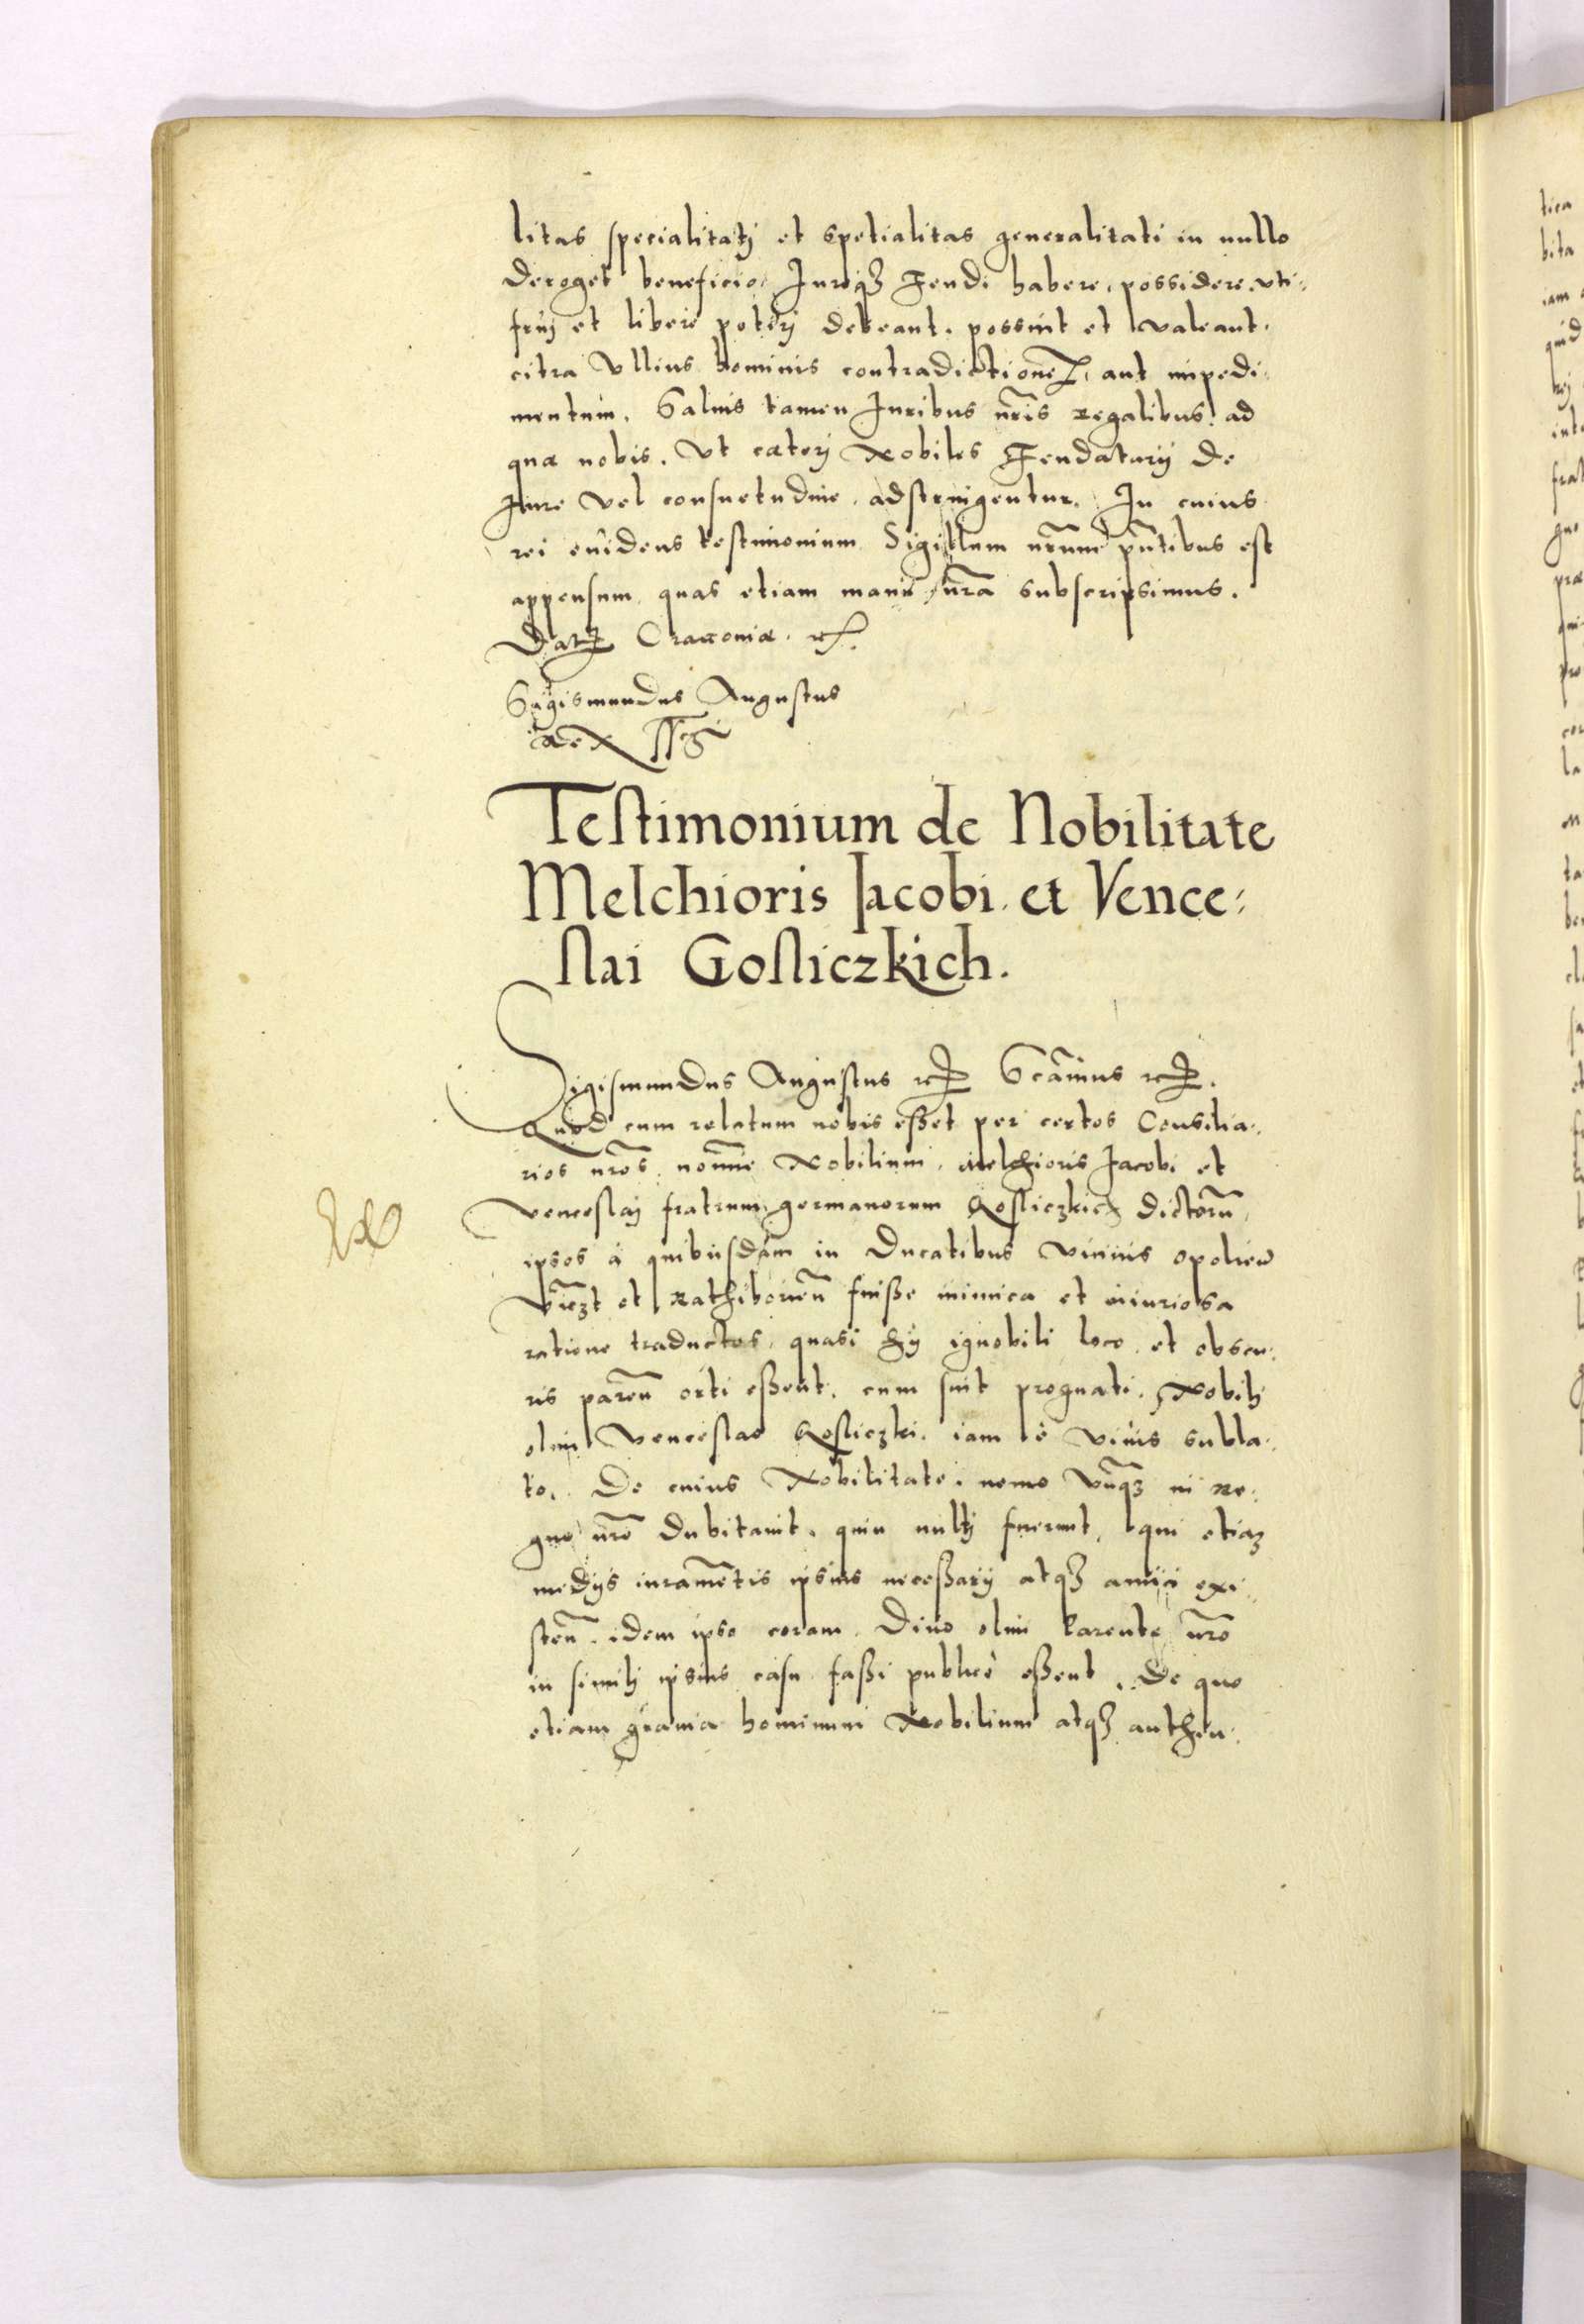 litas specialitatj et spetialitas generalitati in nullo
deroget beneficio. Jureqȝ Feudi habere, possidere, vti,
fruj et libere potirj debeant, possint et valeant,
citra vllius hominis contradictionem, aut impedi-
mentum. Saluis tamen Juribus nr̃is regalibus, ad
quæ nobis, vt cæterj Nobiles Feudatarij de
Jure vel consuetudine, adstringentur. In cuius
rei euidens testimonium Sigillum nr̃um pñtibus est
appensum, quas etiam manu nr̃a subscripsimus.
Datȝ Cracouiæ. etc.
Sigismundus Augustus
Rex sst̃
Testimonium de Nobilitate
Melchioris Jacobi. et Vence-
slai Gosliczkich.
Sigismundus Augustus etc. Sc̃amus etc.
Quod cum relatum nobis eßet per certos Consilia-
rios nr̃os, noĩne Nobilium, Melchioris Jacobi et
Venceslaj fratrum germanorum Gosliczkich dictorũ,
ipsos à quibusdam in Ducatibus vicinis Opolien̄
et Rathiborien̄ fuiße inimica et iniuriosa
ratione traductos, quasi hij ignobili loco, et obscu-
ris paren̄ orti eßent, cum sint prognati, Nobilj
olim Venceslao Gosliczki, iam è viuis subla-
to, De cuius Nobilitate, nemo vñqȝ in Re-
gno nr̃o dubitauit, quin multj fuerunt, qui etiaȝ
medijs iuramẽtis ipsius neceßarij atqȝ amici exi-
sten̄, idem ipso coram Diuo olim Parente nr̃o
in similj ipsius casu faßi publicè eßent, De quo
etiam grauia hominum Nobilium atqȝ authen-